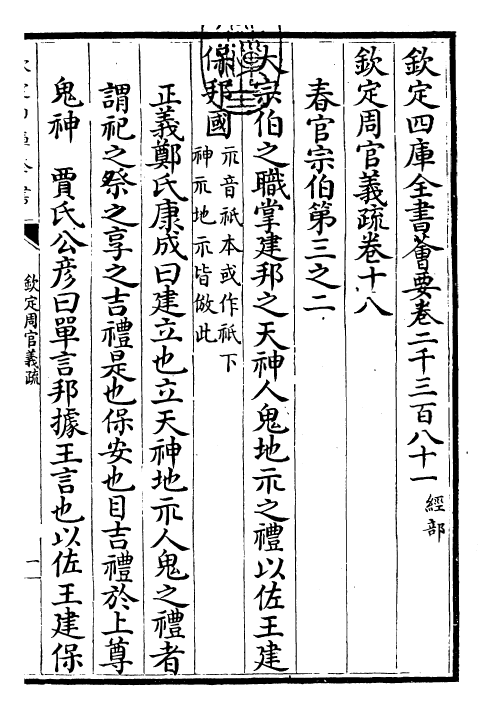 欽定四庫全書薈要卷二千三百八十一 經部
欽定周官義疏卷十八
春官宗伯第三之二
大宗伯之職掌建邦之天神人鬼地示之禮以佐王建
保邦國 示音祇本或作祇下
神示地示皆倣此
正義鄭氏康成曰建立也立天神地示人鬼之禮者
謂祀之祭之享之吉禮是也保安也目吉禮於上尊
鬼神 賈氏公彦曰單言邦據王言也以佐王建保
欽定周官義疏
一